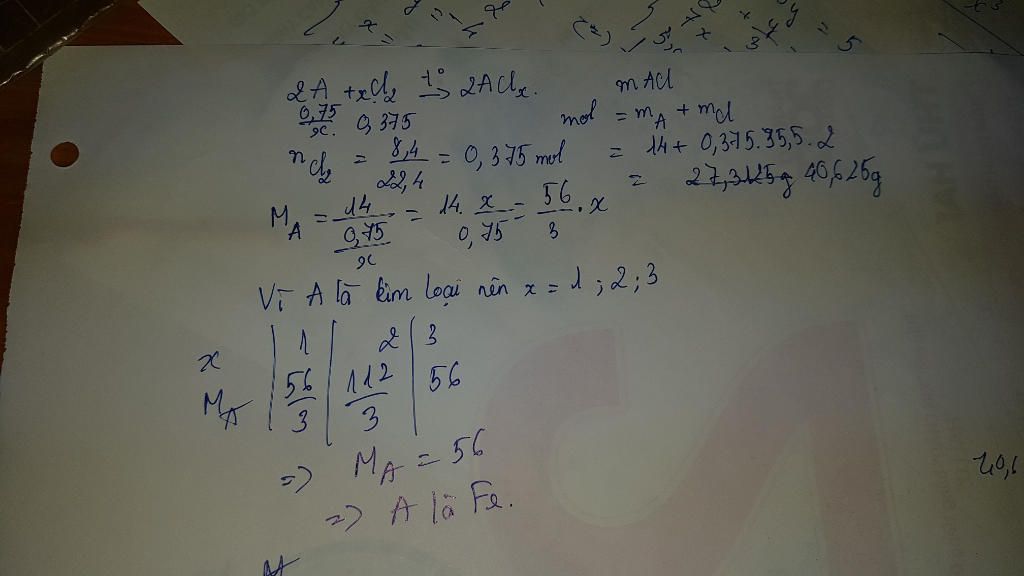 2A + xCl₂ →t° 2AClₓ.
0,75/x 0,375
n Cl₂ = 8,4/22,4 = 0,375 mol
M_A = 14/(0,75/x) = 14. x/0,75 = 56/3 . x
mACl
mol = m_A + m_Cl
= 14 + 0,375.35,5.2
= 27,3125g 40,625g
Vì A là kim loại nên x = 1 ; 2 ; 3
x | 1 | 2 | 3
M_A | 56/3 | 112/3 | 56
=> M_A = 56
=> A là Fe.
M
40,6